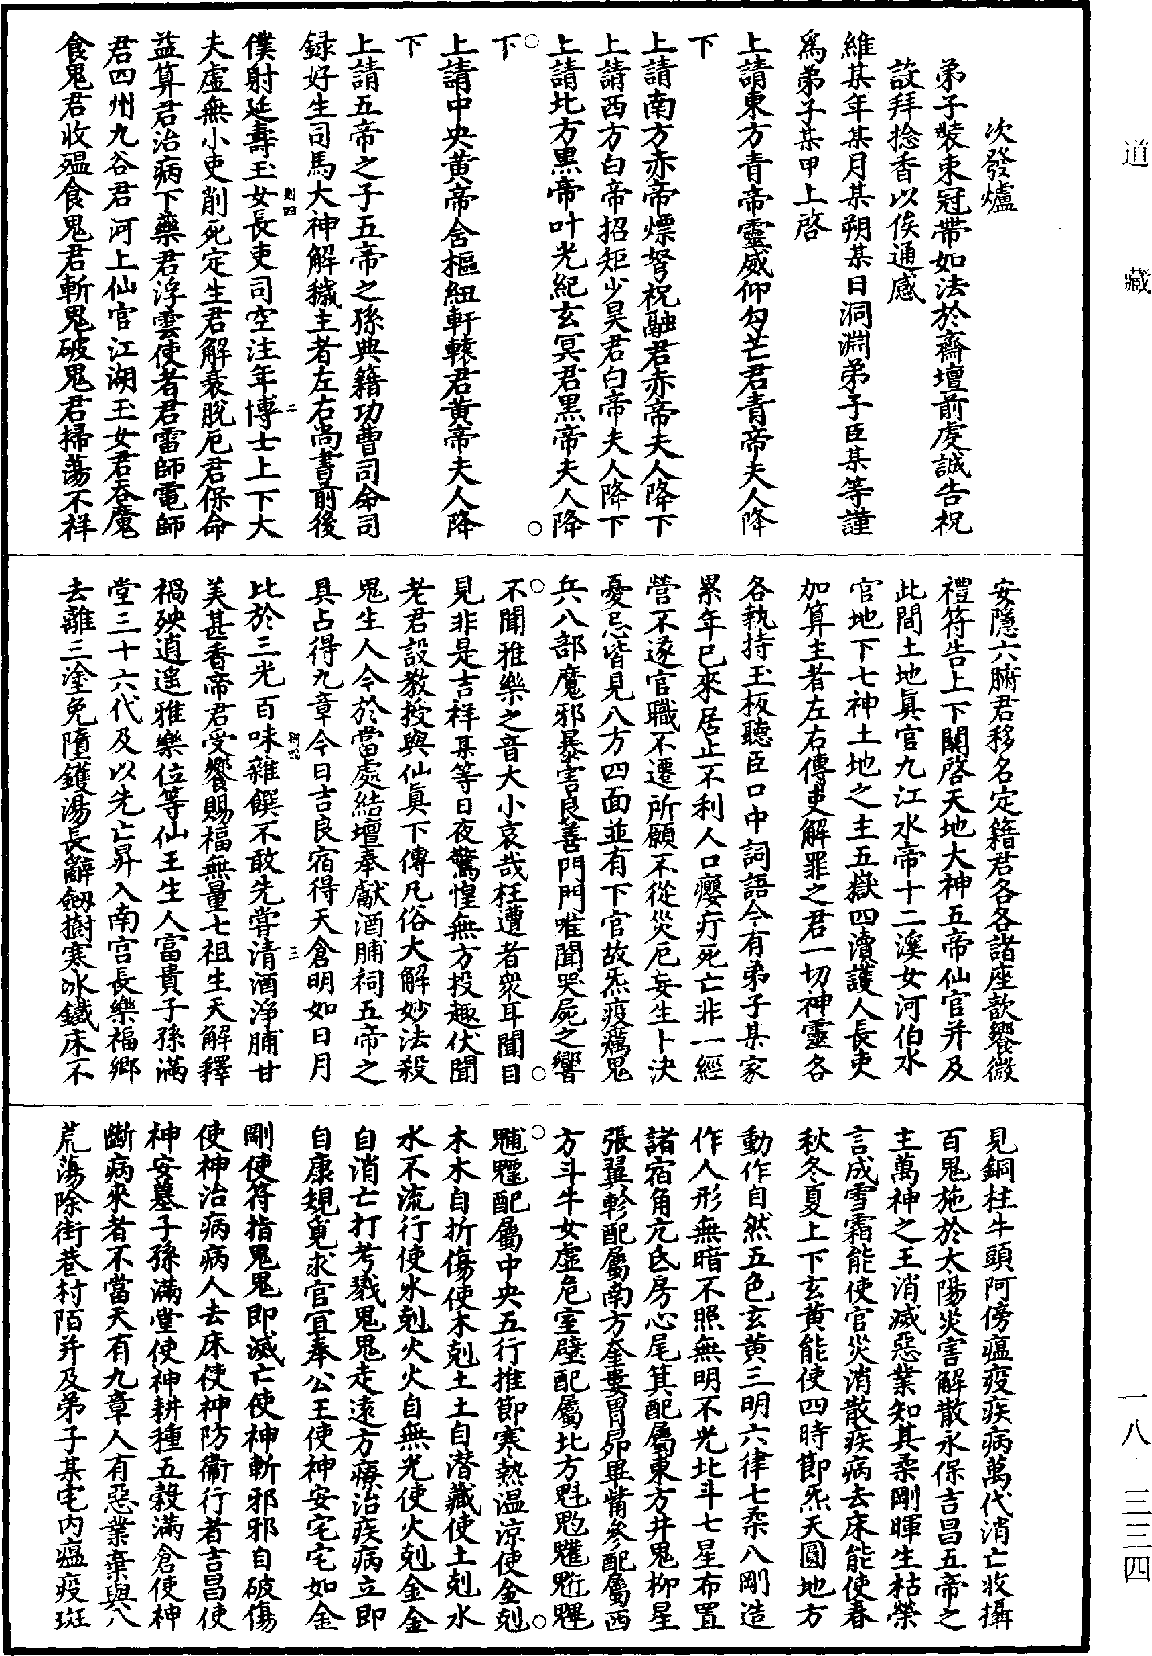 道藏
一八 三三四
次發爐
弟子裝束冠帶如法於齋壇前虔誠告祝
設拜捻香以俟通感
維某年某月某朔某日洞淵弟子臣某等謹
爲弟子某甲上啓
上請東方青帝靈威仰勾芒君青帝夫人降
下
上請南方赤帝熛弩祝融君赤帝夫人降下
上請西方白帝招矩少昊君白帝夫人降下
上請北方黑帝叶光紀玄冥君黑帝夫人降
下
上請中央黃帝含樞紐軒轅君黃帝夫人降
下
上請五帝之子五帝之孫典籍功曹司命司
録好生司馬大神解穢主者左右尚書前後
僕射延壽玉女長吏司空注年博士上下大
夫虛無小吏削死定生君解衰脫厄君保命
益算君治病下藥君浮雲使者君雷師電師
君四州九谷君河上仙官江湖玉女君吞魔
食鬼君收瘟食鬼君斬鬼破鬼君掃蕩不祥
安隱六腑君移名定籍君各各諸座歆饗微
禮符告上下關啓天地大神五帝仙官并及
此間土地真官九江水帝十二溪女河伯水
官地下七神土地之主五嶽四瀆護人長吏
加算主者左右傳吏解罪之君一切神靈各
各執持玉板聽臣口中詞語今有弟子某家
累年已來居止不利人口癭疔死亡非一經
營不遂官職不遷所願不從災厄妄生卜決
憂忌皆見八方四面並有下官故炁疫癘鬼
兵八部魔邪暴害良善門門唯聞哭屍之響
不聞雅樂之音大小哀哉枉遭者衆耳聞目
見非是吉祥某等日夜驚惶無方投趣伏聞
老君設教授與仙真下傳凡俗大解妙法殺
鬼生人今於當處結壇奉獻酒脯祠五帝之
具占得九章今日吉良宿得天倉明如日月
比於三光百味雜饌不敢先嘗清酒淨脯甘
美甚香帝君受饗賜福無量七祖生天解釋
禍殃逍遙雅樂位等仙王生人富貴子孫滿
堂三十六代及以先亡昇入南宫長樂福鄉
去離三塗免墮鑊湯長辭劒樹寒冰鐵床不
見銅柱牛頭阿傍瘟疫疾病萬代消亡收攝
百鬼施於太陽災害解散永保吉昌五帝之
主萬神之王消滅惡業知其柔剛暉生枯榮
言成雪霜能使官災消散疾病去床能使春
秋冬夏上下玄黃能使四時節炁天圓地方
動作自然五色玄黃三明六律七柔八剛造
作人形無暗不照無明不光北斗七星布置
諸宿角亢氐房心尾箕配屬東方井鬼柳星
張翼軫配屬南方奎婁胃昴畢觜參配屬西
方斗牛女虛危室壁配屬北方魁䰢䰡魓䰟
魒魑配屬中央五行推節寒熱温涼使金剋
木木自折傷使木剋土土自潜藏使土剋水
水不流行使水剋火火自無光使火剋金金
自消亡打考戮鬼鬼走遠方療治疾病立即
自康規覓求官宜奉公王使神安宅宅如金
剛使符指鬼鬼即滅亡使神斬邪邪自破傷
使神治病病人去床使神防衞行者吉昌使
神安墓子孫滿堂使神耕種五榖滿倉使神
斷病來者不當天有九章人有惡業棄與八
荒蕩除街巷村陌并及弟子某宅内瘟疫斑